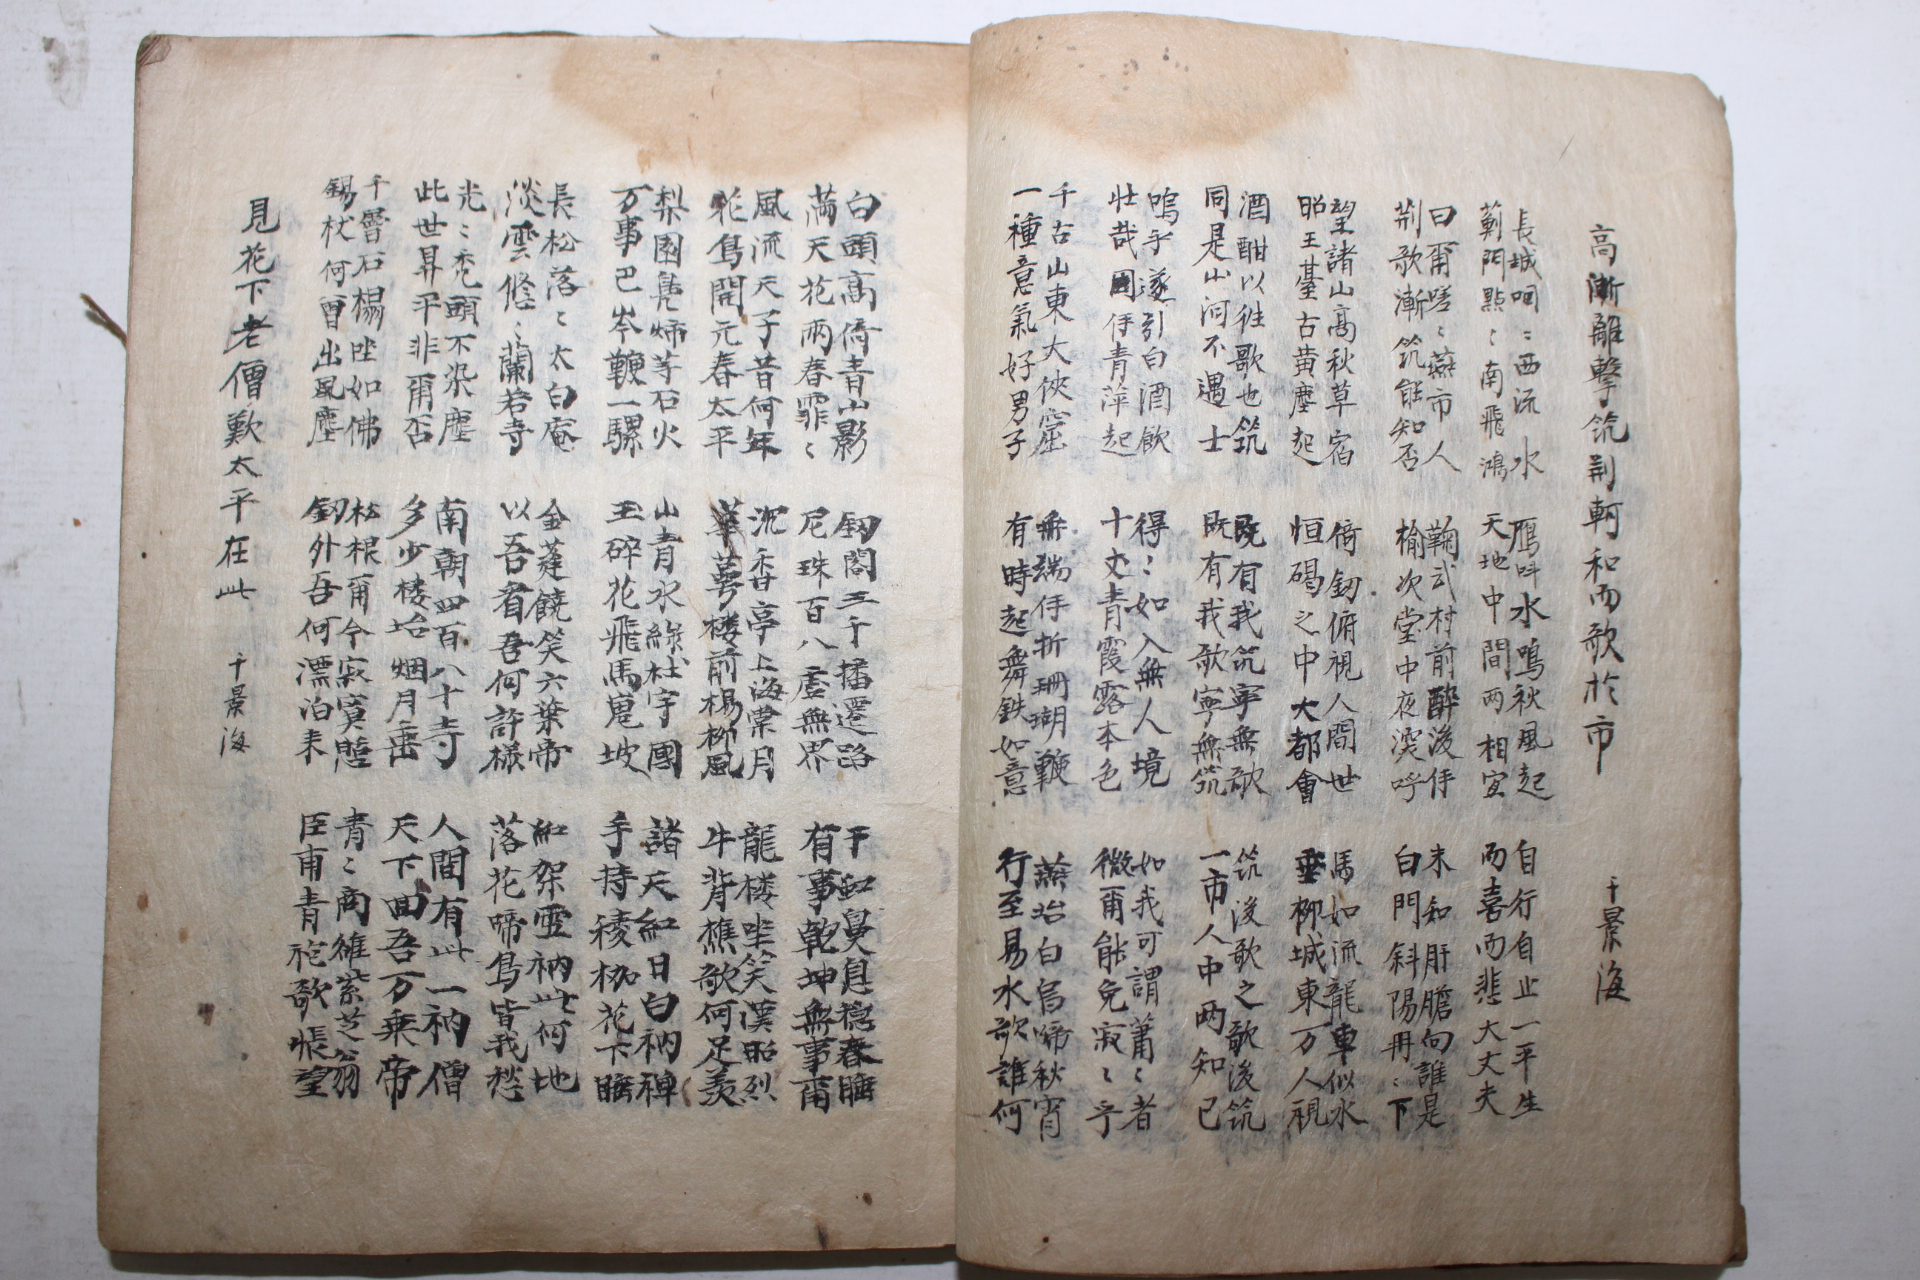 高漸離擊筑荆軻和而歌於市 千景海
長城咽〻西流水
薊門點〻南飛鴻
鴈呌水鳴秋風起
天地中間兩相宜
自行自止一平生
而喜而悲大丈夫
曰爾嗟〻燕市人
荆歌漸筑能知否
鞠武村前醉後侍
榆次堂中夜深呼
未知肝膽向誰是
白門斜陽冉〻下
望諸山高秋草宿
昭王臺古黄塵起
倚釼俯視人間世
恒碣之中大都會
馬如流龍車似水
垂柳城東万人視
酒酣以往歌也筑
同是山河不遇士
既有我筑寧無歌
既有我歌寧無筑
筑後歌之歌後筑
一市人中兩知己
嗚乎遂引白酒飮
壯哉 侍青萍起
得〻如入無人境
十丈青霞露本色
如我可謂蕭〻者
微爾能免寂〻乎
千古山東大俠窟
一種意氣好男子
無端侍折珊瑚鞭
有時起舞鉄如意
燕坮白烏啼秋宵
行至易水歌誰何
白頭高倚青山影
滿天花雨春霏〻
釼閣三千播遷路
尼珠百八虛無界
干虹臭息穩春睡
有事乾坤無事爾
風流天子昔何年
花鳥開元春太平
沉香亭上海棠月
華萼楼前楊柳風
龍楼坐笑漢昭烈
牛背樵歌何足羡
梨園鳧 等石火
万事巴岑鞭一騾
山青水綠杜宇國
玉碎花飛馬嵬坡
諸天紅日白衲禅
手持稜枷花下睡
長松落〻太白庵
淡雲修〻蘭若寺
金蓮饒笑六葉帝
以吾看吾何許樣
紅架雲衲此何地
落花啼鳥皆我愁
光〻禿頭不染塵
此世昇平非爾否
南朝四百八十寺
多少楼坮烟月垂
人間有此一衲僧
天下曲吾万乘帝
千層石榻坐如佛
錫杖何曾出風塵
松根爾今寂寞睡
釼外吾何漂泊来
青〻商雒紫芝翁
臣甫青袍歌悵望
見花下老僧歎太平在此 千景海